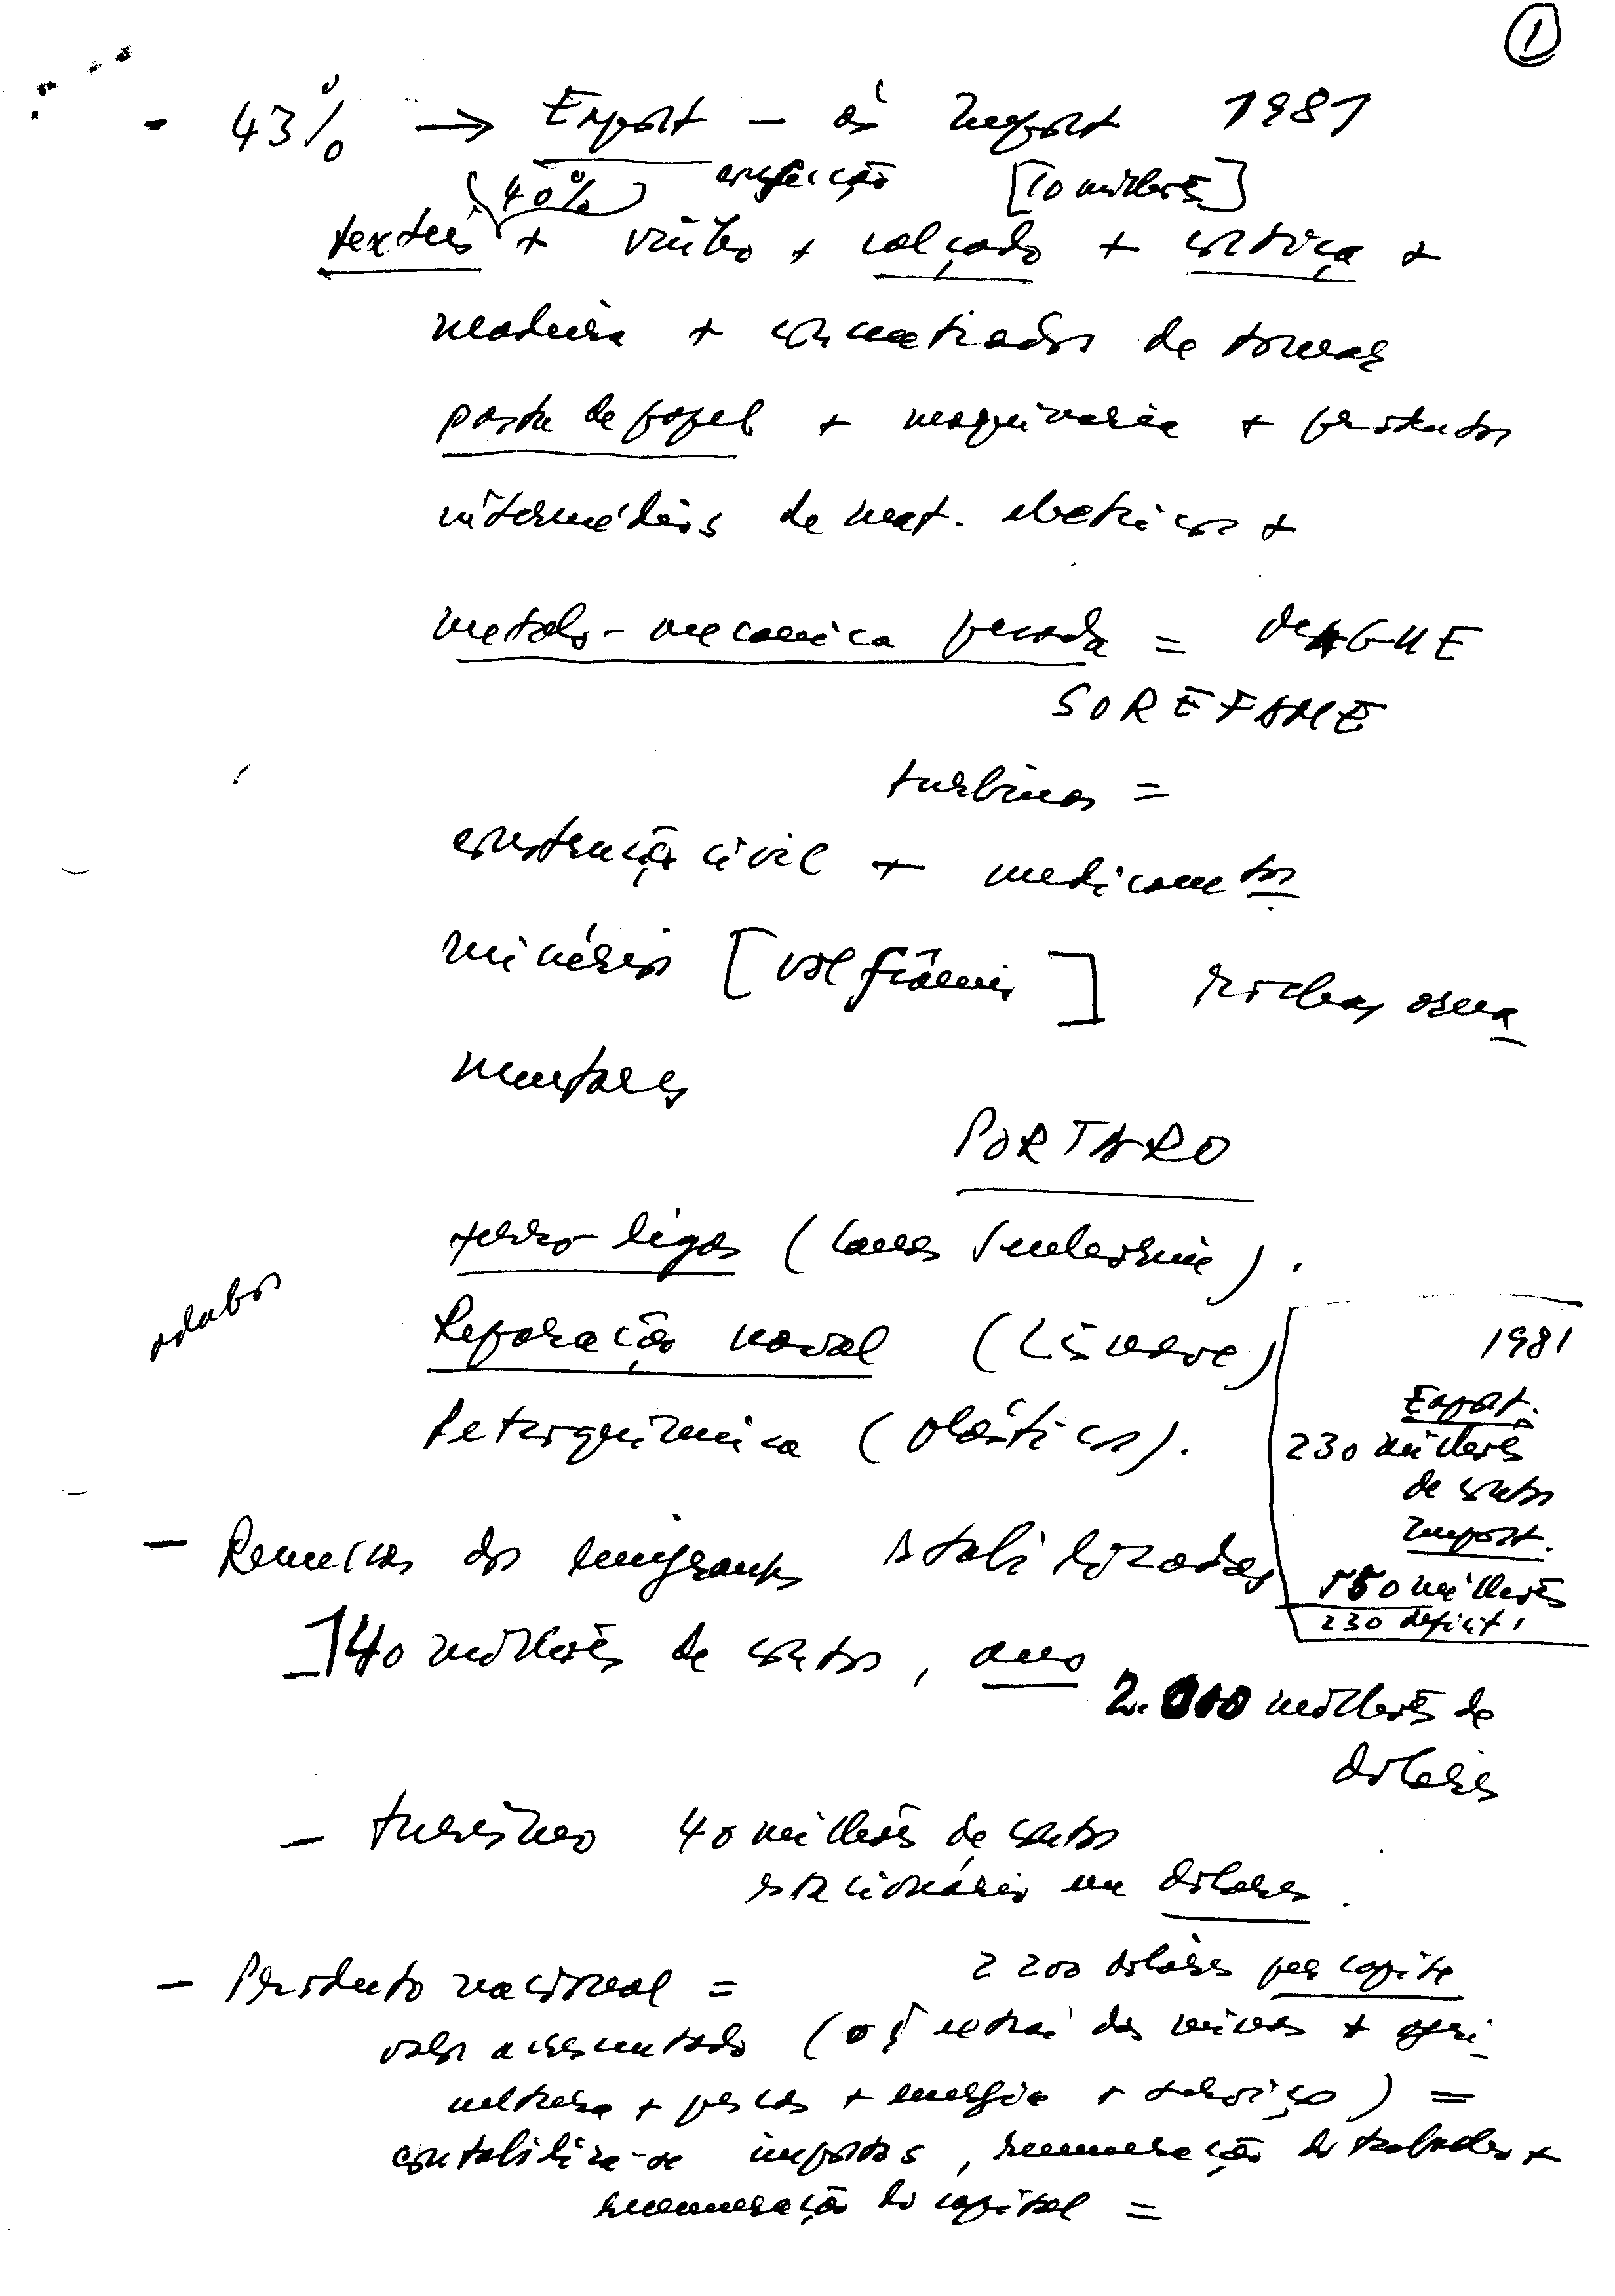 1
- 43% → Export - as Import 1981
(40%) confecção [10 milhões]
texteis + vinho + calçado + cortiça +
madeira + concentrados de tomate
pasta de papel + maquinaria + produtos
intermédios de mat. electricos +
metalo-mecanica pesada = MAGUE
SOREFAME
turbinas =
construção civil + medicamentos
minérios [volfrâmio] rochas orna
mentais
PORTARO
ferro-ligas (Canas Senhorim).
adubos
Reparação naval (Lisnave)
Petroquimica (plásticos).
1981
Export.
230 milhões
de contos
Import.
550 milhões
230 deficit
- Remessas dos emigrantes estabilizadas
140 milhões de contos, ano
2.000 milhões de
dolares
- turismo 40 milhões de contos
estacionário em dolares.
- Produto nacional = 2200 dolares per capita
valor acrescentado (o q extrai das minas + agri
cultura + pescas + energia + serviços) =
contabiliza-se impostos, remuneração do trabalho +
remuneração do capital =